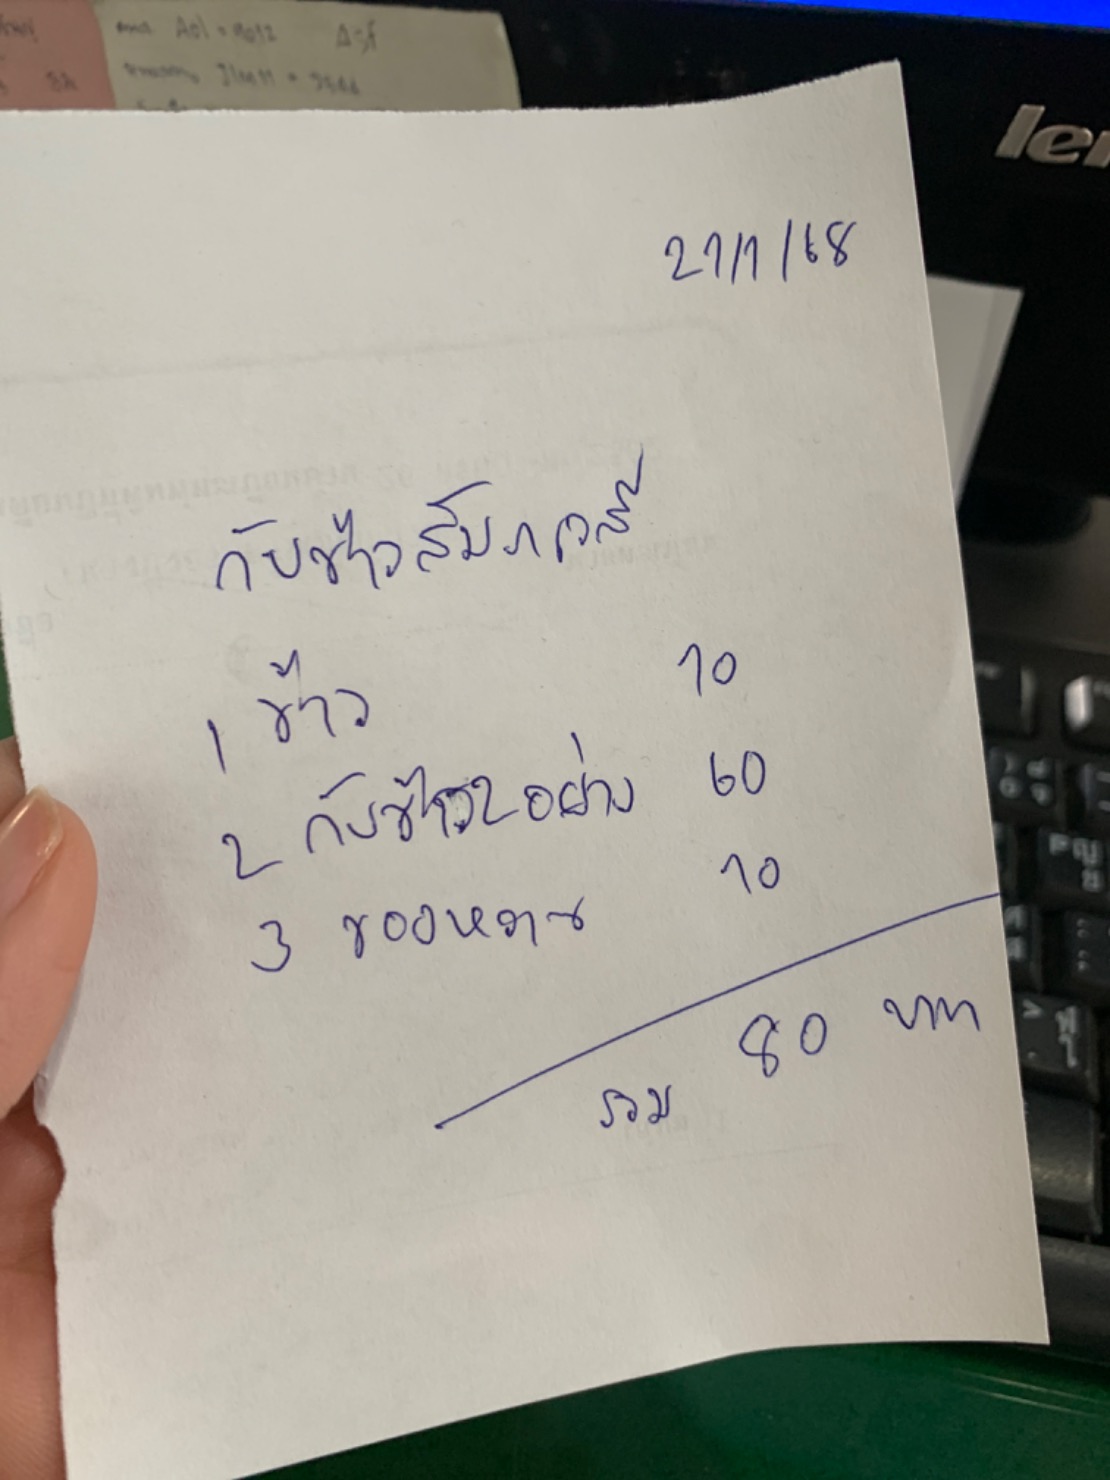 27/1/68
กับข้าวส้มภวลี
1 ข้าว 10
2 กับข้าว 2 อย่าง 60
3 ของหวาน 10
รวม 80 บาท